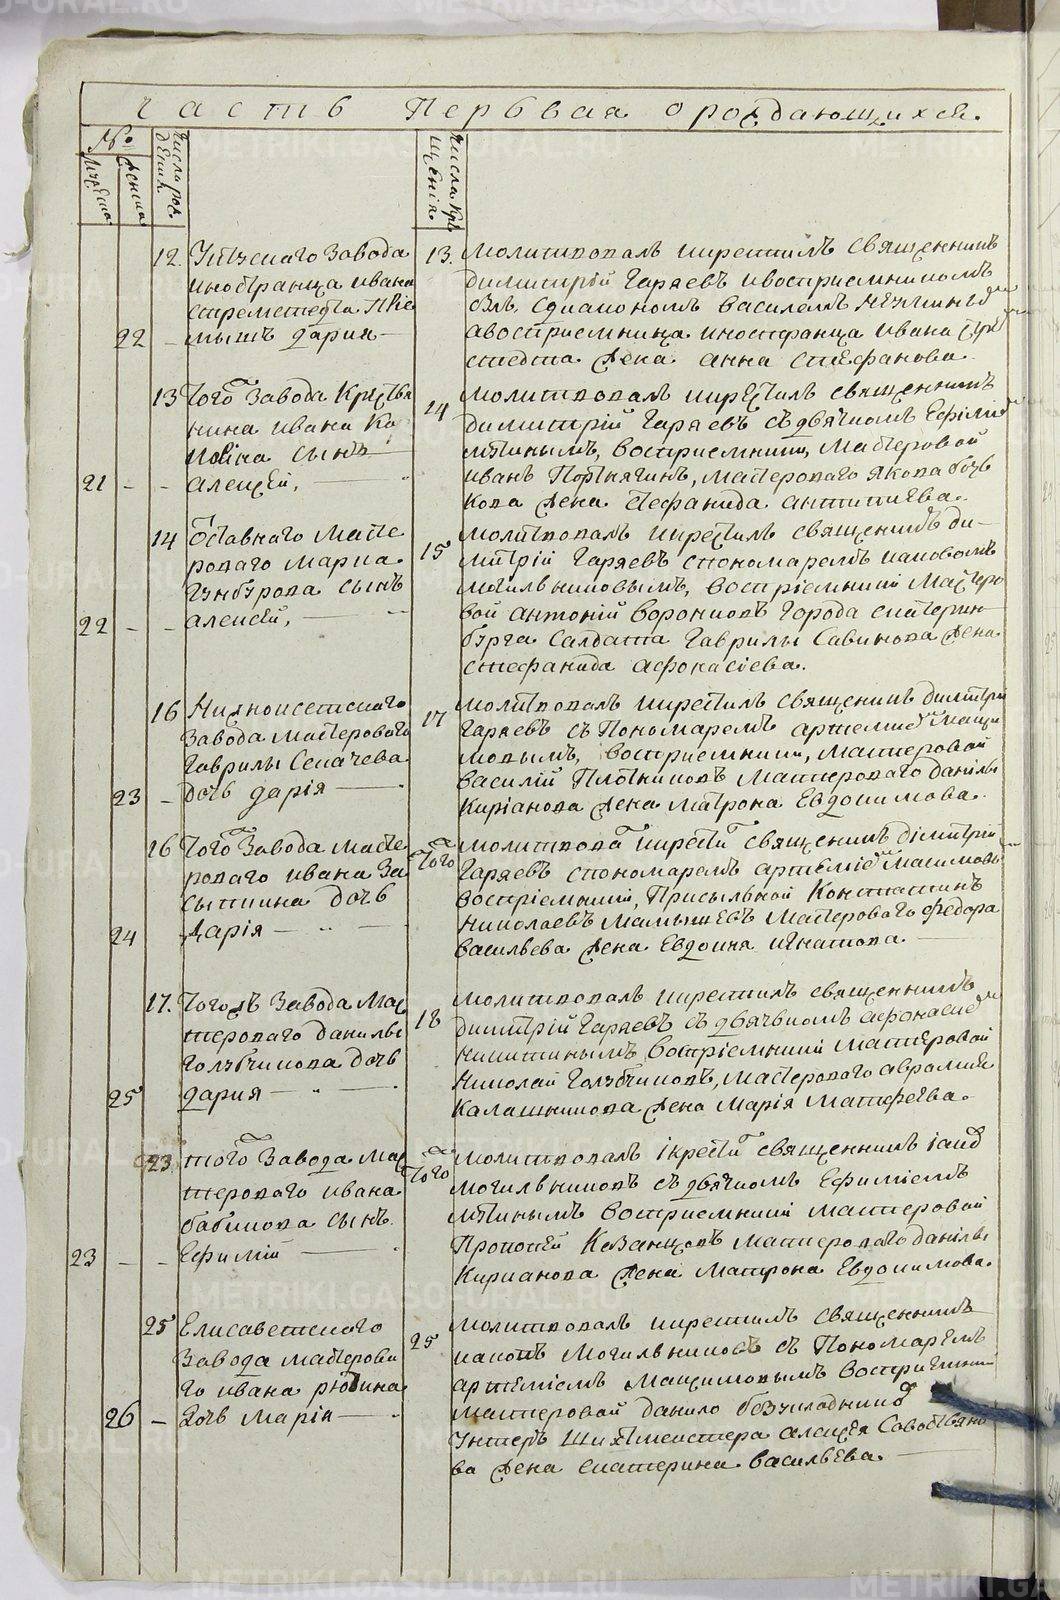 Часть Первая о рождающихся.
№
Мужеска
Женска
Числа рож
дения
Числа кре
щенiя
12. Уктускаго завода
иностранца ивана
22 — дария —
13. молитвовалъ икрестилъ священникъ
димитрiй Гаряевъ ивосприемникомъ
авосприемница иностранца ивана
жена анна стефанова
13 того завода Крестья
нина ивана Ко
сынъ
21 - - алексей, —
14 молитвовалъ икрестилъ священникъ
димитрiй Гаряевъ съ дьячкомъ Ефимие
мъ восприемники, мастеровой
иванъ мастероваго якова
кова жена стефанида антипиева.
14 отставнаго масте
роваго марка
сынъ
22 - - алексей, —
15 молитвовалъ икрестилъ священникъ ди-
митрiй Гаряевъ спономаремъ иаковомъ
могильниковымъ, воспрiемники мастеро
вой антонiй воронцовъ города екатерин
бурга салдата гаврилы савинова жена
стефанида афонасiева.
16 Нижноисетскаго
завода мастероваго
гаврилы
23 — дочь дарiя —
17 молитвовалъ икрестилъ священникъ димитрiй
Гаряевъ съ пономаремъ артемiемъ макси
мовымъ, восприемники, мастеровой
василiй Плотниковъ мастероваго данилы
Кирiанова жена матрона Евдокимова.
16 того завода масте
роваго ивана За
сыпкина дочь
24 Дарiя — —
того молитвова икрести священникъ дiмитрiй
Гаряевъ спономаремъ артемiемъ максимовы
воспрiемники, присыльной Константинъ
николаевъ мамышевъ мастероваго федора
васильева жена Евдокия игнатова. —
17. тогожъ завода мас
тероваго данилы
голубчикова дочь
25 дария — —
18 молитвовалъ икрестилъ священникъ
димитрiй Гаряевъ съ дьячкомъ афонасие
никитинымъ воспрiемники мастеровой
николай голубчиковъ, мастероваго аврамия
Калашникова жена марiя матфеева.
23 того завода мас
тероваго ивана
бабикова сынъ
23 - - Ефимiй —
того молитвовалъ iкрести священникъ iако
могильниковъ съ дьячкомъ Ефимiемъ
восприемники мастеровой
Прокопей Казанцовъ мастероваго данилы
Кирианова жена матрона Евдокимова.
25 Елисаветскаго
завода мастерова
го ивана
26 — дочь марiя —
25 молитвовалъ икрестилъ священникъ
иаковъ могильниковъ съ Пономаремъ
артемiемъ максимовымъ восприемники
мастеровой данило
унтеръ шихтмейстера алексея
ва жена екатерина васильева. —